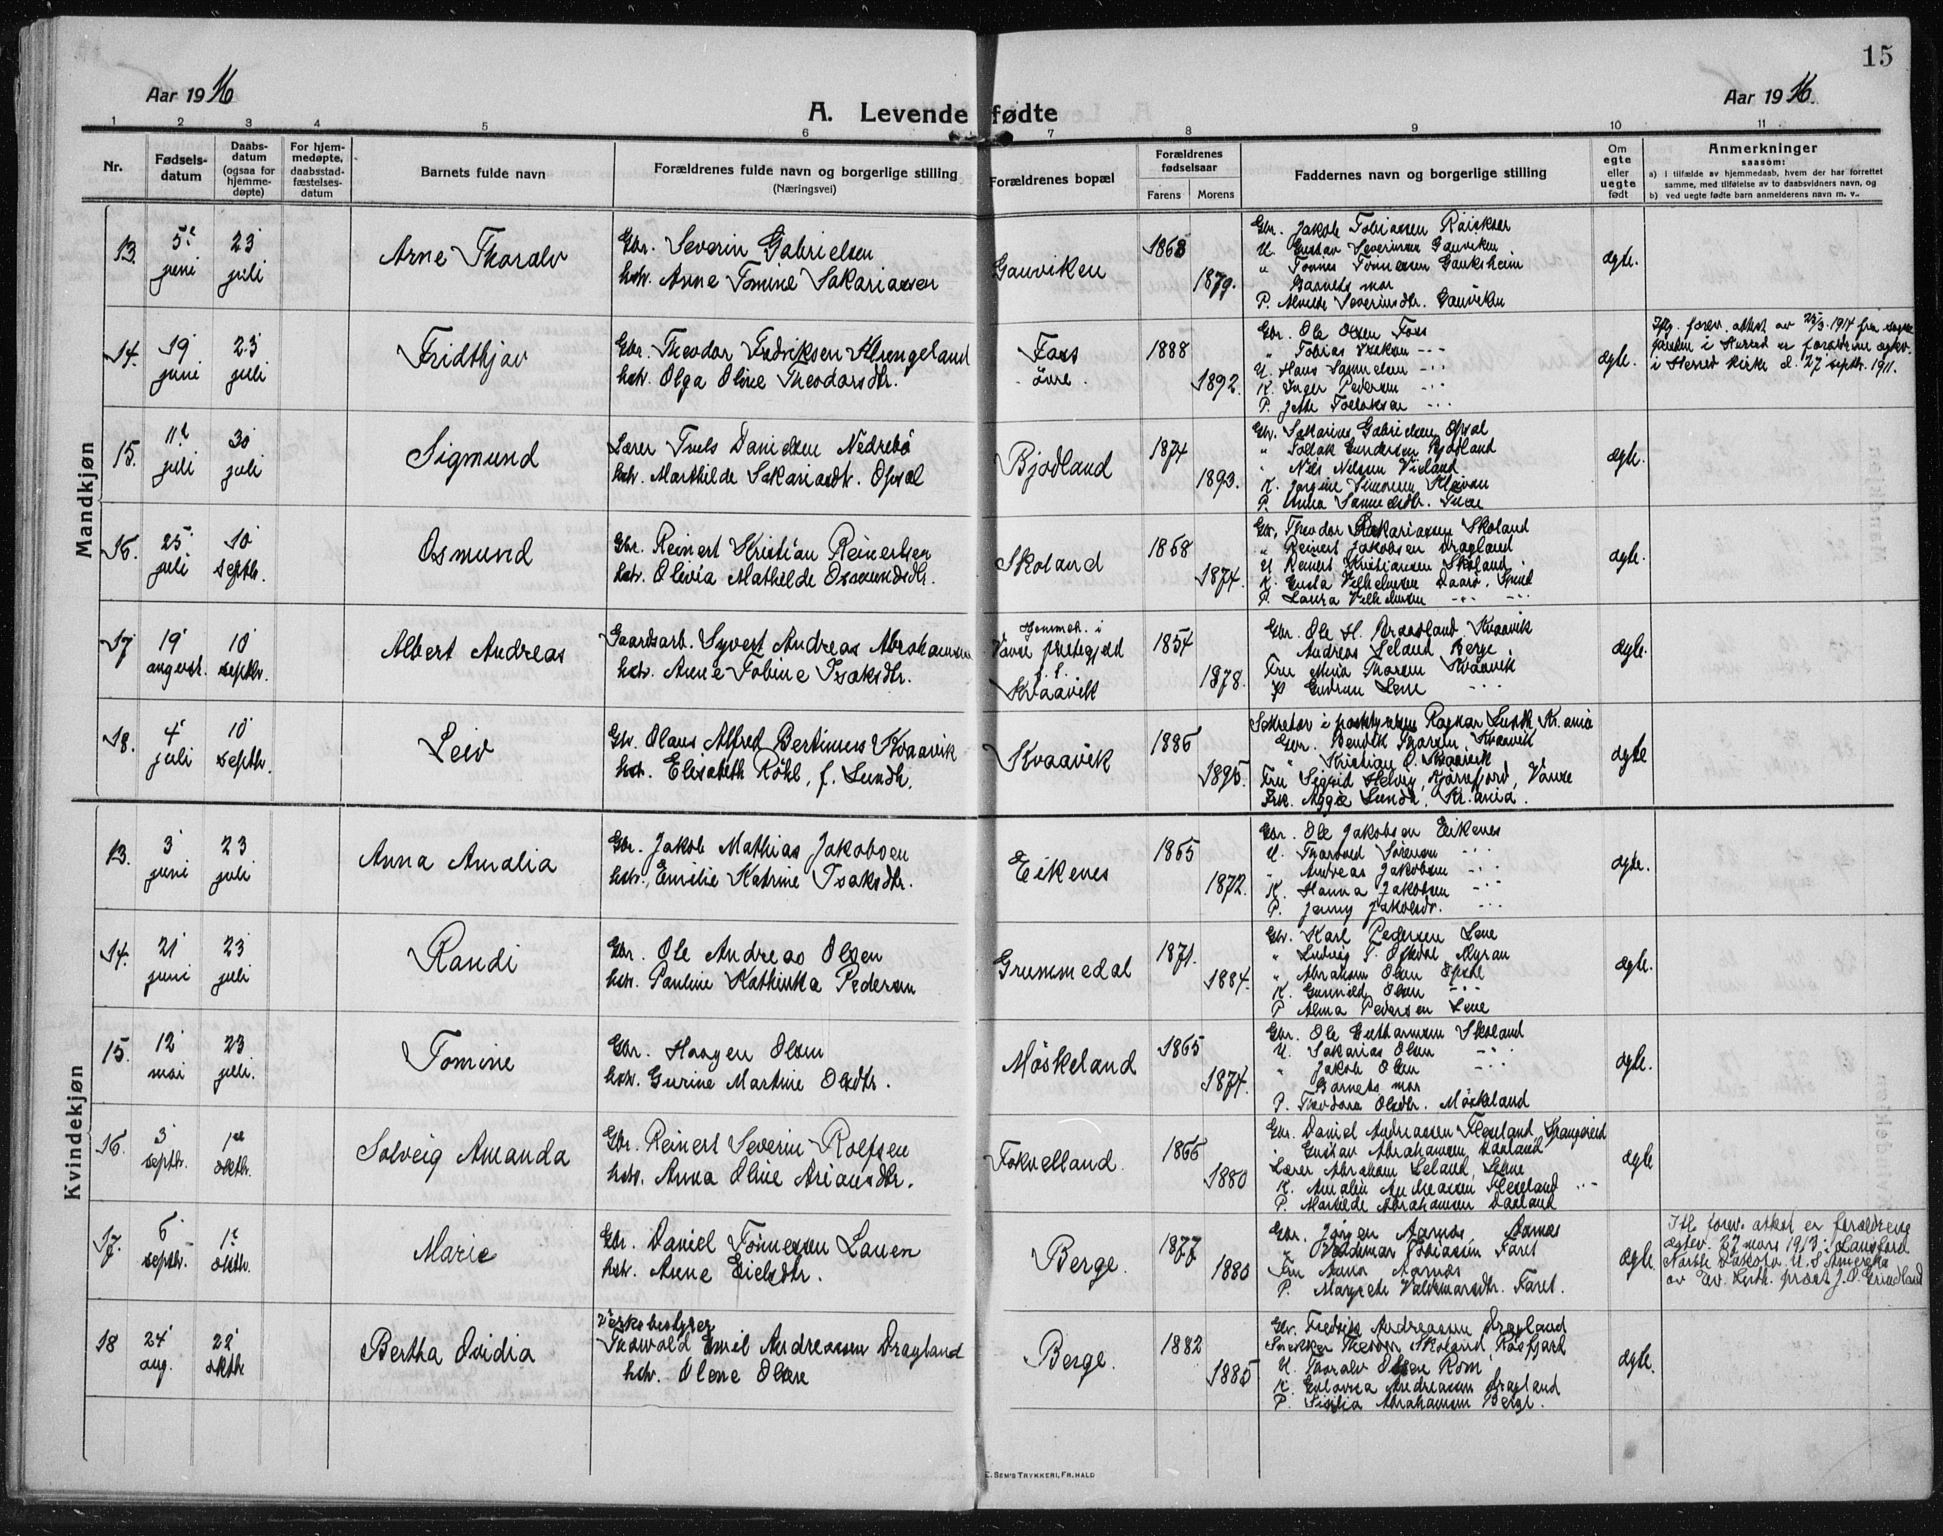 15
Aar 1916
A. Levende fødte
Aar 1916.
1 2 3 4 5 6 7 8 9 10 11
Nr.
Fødsels-
datum
Daabs-
datum
(ogsaa for
hjemme-
døpte)
For hjem-
medøpte,
daabsstad-
fæstelses-
datum
Barnets fulde navn
Forældrenes fulde navn og borgerlige stilling
(Næringsvei)
Forældrenes bopæl
Forældrenes
fødselsaar
Farens Morens
Faddernes navn og borgerlige stilling
Om
egte
eller
uegte
født
Anmerkninger
saasom:
a) I tilfælde av hjemmedaab, hvem der har forrettet
samme, med tilføielse av to daabsvidners navn, og
b) ved uegte fødte barn anmelderens navn m. v.
Mandkjøn
13. 5te juni 23 juli
Arne Thoralv
Gbr. Severin Gabrielsen
hstr. Anne Tomine Sakariassen
Gauviken
1868 1879.
Gbr. Jakob Tobiassen
U. Gustav Severinsen Gauviken
" Tønnes Tønnessen Gauksheim
Barnets mor
P. Severinsdtr. Gauviken
ægte.
14. 19 juni 23 juli
Fridthjov
Gbr. Theodor Fredriksen
hstr. Olga Oline Theodorsdtr.
Foss
øvre.
1888 1892.
Gbr. Ole Olsen Foss
" Tobias
U. Hans Samuelsen
K. Inger Pedersen
P. Jette
ægte.
Iflg. forev. attest av 25/3-1917 fra sogne
i Herred er forældrene egtev.
i Herred kirke d. 27 septbr. 1911.
15. 11te juli 30 juli
Sigmund
Lærer Truls Danielsen Nedrebø
hstr. Marthilde Sakariasdtr. Opsal
Bjodland
1874 1893.
Gbr. Sakarias Gabrielsen Opsal
" Gundersen Bjodland
" Nils Nilsen
K. Jorgine Simonsen
P. Anna Samuelsdtr.
ægte.
16. 25 juli 10 septbr.
Osmund
Gbr. Reinert Kristian Reinertsen
hstr. Olivia Mathilde Osmundsdtr.
Skoland
1868 1874.
Gbr. Theodor Sakariassen Skoland
" Reinert Jakobsen Dragland
U. Reinert Kristiansen Skoland
K. Gusta Vilhelmsen Spind
P. Laura Vilhelmsen
ægte.
17 19 august. 10 septbr.
Albert Andreas
Gaardsarb. Syvert Andreas Abrahamsen
hstr. Anne Tobine Isaksdtr.
Hjemmeh. i
Vanse prestegjeld
f. t.
Kvaavik
1854 1878.
Gbr. Ole H. Kvaavik
Andreas Leland Berge
Fru Mina Thorsen Kvaavik
P Gudrun Lene
ægte.
18. 4 juli 10 septbr.
Leiv
Gbr. Olaus Alfred Bertinius Kvaavik
hstr. Elisabeth Röhl, f. Lundh.
Kvaavik
1886 1895.
Sekretær i Ragnar Lundh Kr.ania
Gbr. Bendik Thorsen, Kvaavik
" Kristian O. Kvaavik
Fru Sigrid Helvig, Vanse
Frk. Aggie Lundh, Kr.ania.
ægte
Kvindekjøn
13. 3 juni 23 juli
Anna Amalia
Gbr. Jakob Mathias Jakobsen
hstr. Emilie Katrine Isaksdtr.
Eikenes
1865 1872.
Gbr. Ole Jakobsen Eikenes
U. Thorvald Sørensen
" Andreas Jakobsen
K. Hanna Jakobsen
P. Jenny Jakobsdtr.
ægte.
14. 21 juni 23 juli
Randi
Gbr. Ole Andreas Olsen
hstr. Pauline Kathinka Pedersen
Grummedal
1871. 1884.
Gbr. Karl Pedersen Lene
" Ludvig T. Myran
" Abraham Olsen Opsal
K. Gunvald Olsen
P Alma Pedersen Lene
ægte.
15. 12 mai 23 juli.
Tomine
Gbr. Haagen Olsen
hstr. Gurine Martine Olsdtr.
Møskeland
1865 1874.
Gbr. Ole Guttormsen Skoland
U. Sakarias Olsen
" Jakob Olsen
Barnets mor
P. Theodora Olsdtr. Møskeland
ægte.
16. 3 septbr. 1ste oktbr.
Solveig Amanda
Gbr. Reinert Severin Rolfsen
hstr. Anna Oline Ariansdtr.
Foknelland.
1866 1880
Gbr. Daniel Andreassen
" Gustav Abrahamsen
Lærer Abraham Leland,
K. Amalie Andreassen
P. Mathilde Abrahamsen
ægte
17. 6 septbr. 1ste oktbr.
Marie
Gbr. Daniel Tønnessen Lauen
hstr. Anne Eielsdtr.
Berge.
1877 1880
Gbr. Jørgen Aarnes, Aarnes
" Valdemar Tobiassen Faret
Fru Anna Aarnes
P. Margrete Valdemarsdtr. Faret.
ægte.
Ifl. forev. attest er forældrene
egtev. 27 mars 1913 i Lansford
North Dakota U. S. Amerika
av ev. luth. præst J. O.
18 24 aug. 22 oktbr.
Bertha Ovidia
Verksbestyrer
Thorvald Emil Andreassen Dragland
hstr. Olene Olsen
Berge.
1882 1885
Gbr. Fredrik Andreassen Dragland
Snedker Theodor Skoland, Rosfjord
U. Thoralv Olsen Rom
K. Andreassen Dragland
P. Sisilia Abrahamsen Berge.
ægte.
E. SEM'S TRYKKERI, FR.HALD